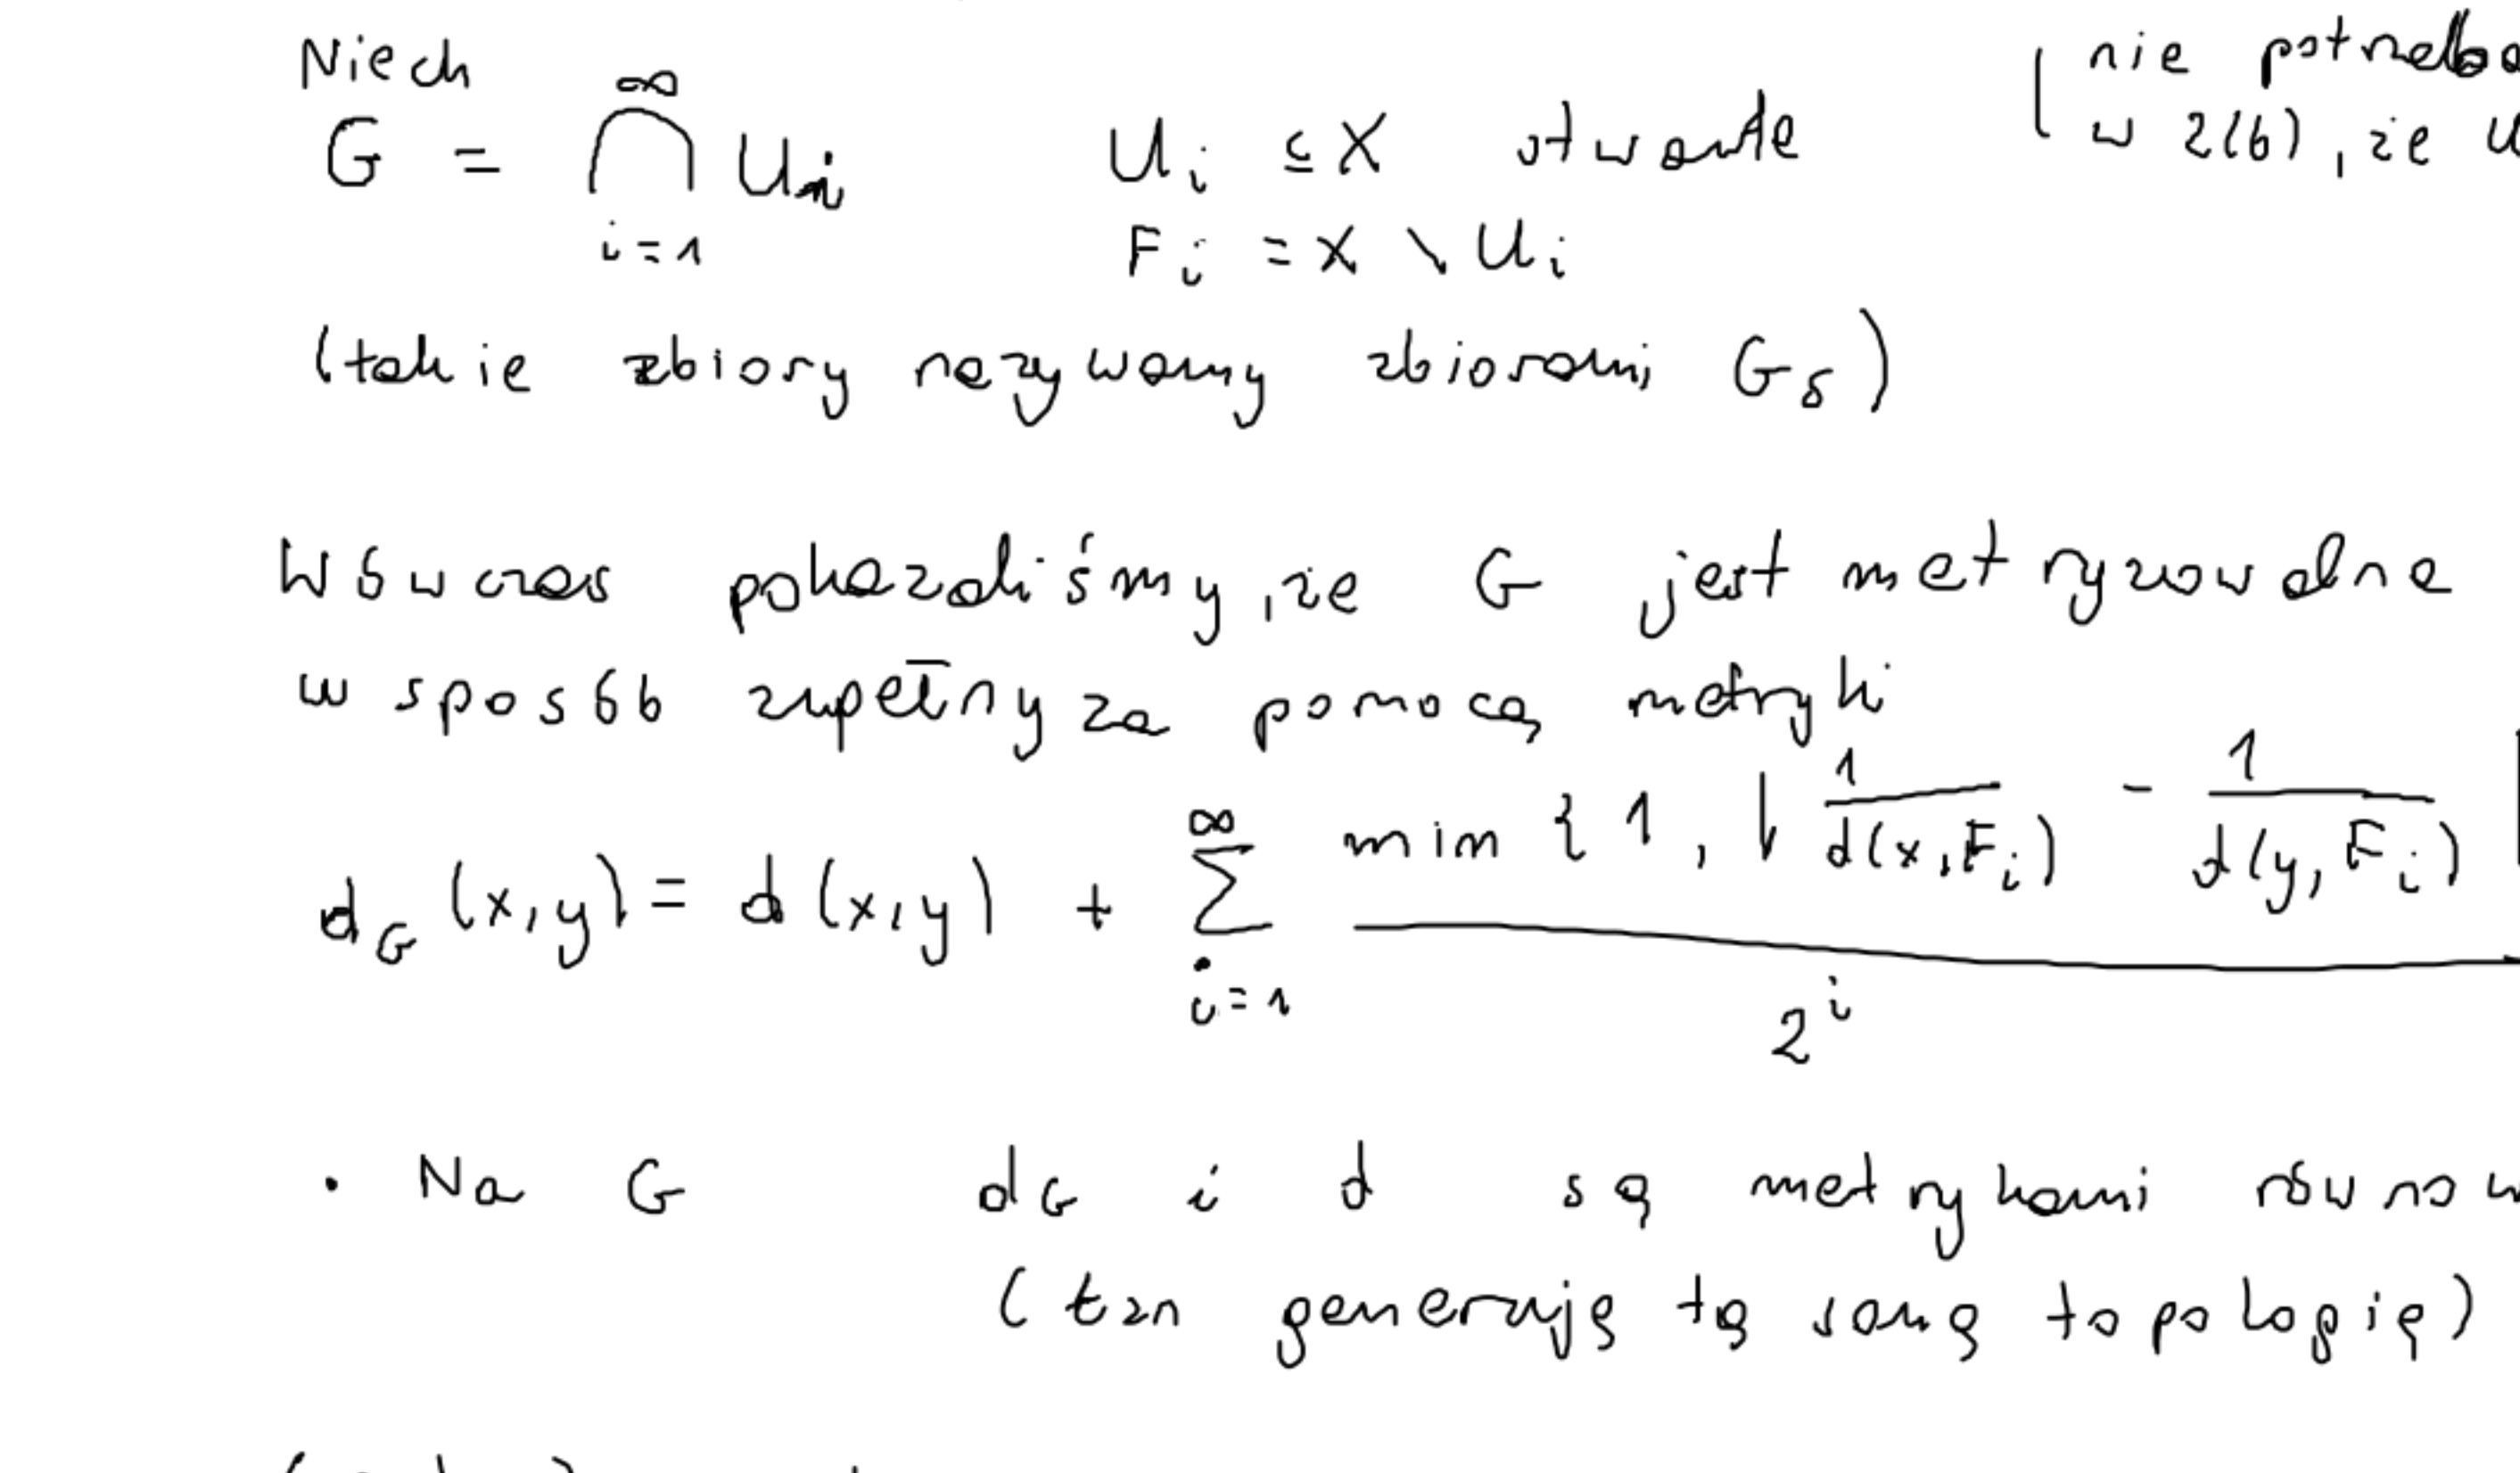 Niech
G = ⋂_{i=1}^{∞} U_i   U_i ⊆ X otwarte
( nie
w 2(b), że
F_i = X \ U_i
(takie zbiory nazywamy zbiorami G_δ)
Wówczas pokazaliśmy, że G jest metryzowalne
w sposób zupełny za pomocą metryki
d_G (x,y) = d(x,y) + ∑_{i=1}^{∞} min { 1, | 1/d(x,F_i) - 1/d(y,F_i) | / 2^i
• Na G d_G i d są metrykami
(tzn generują tą samą topologię)